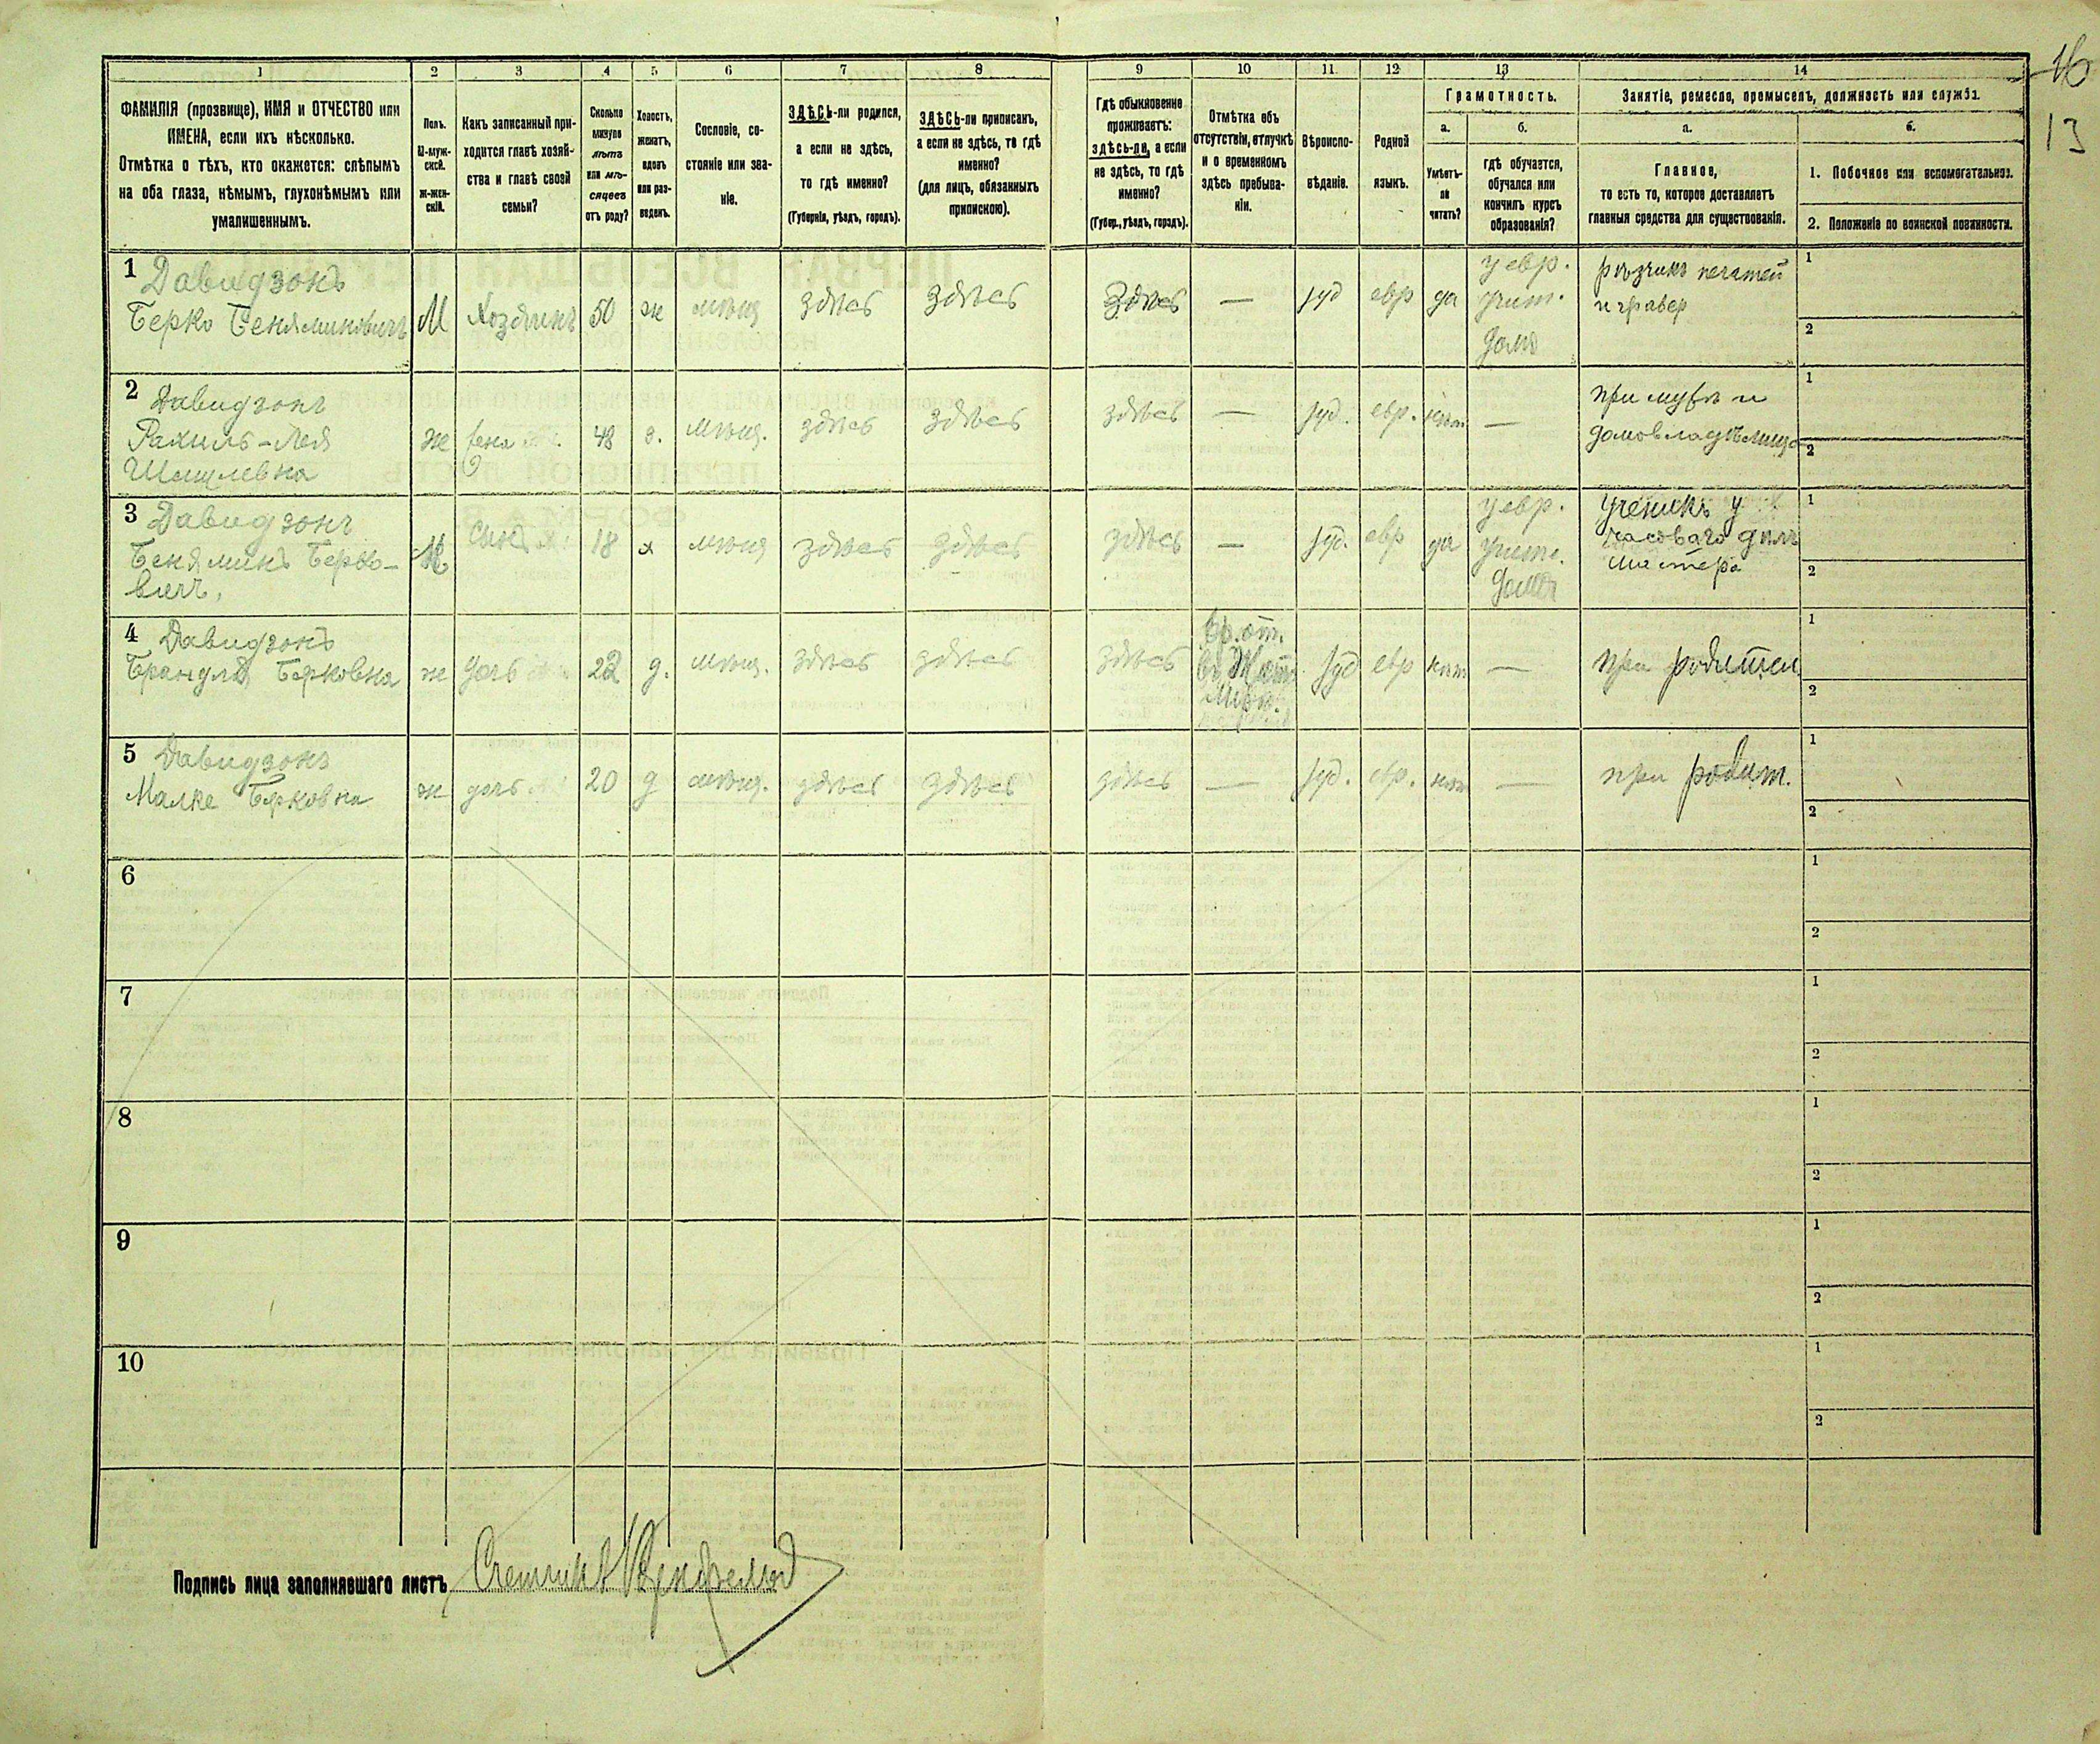 16
13
1 2 3 4 5 6 7 8 9 10 11 12 13 14
ФАМИЛІЯ (прозвище), ИМЯ и ОТЧЕСТВО или
ИМЕНА, если ихъ нѣсколько.
Отмѣтка о тѣхъ, кто окажется: слѣпымъ
на оба глаза, нѣмымъ, глухонѣмымъ или
умалишеннымъ.
Полъ.
М-муж-
ской.
ж-жен-
скій.
Какъ записанный при-
ходится главѣ хозяй-
ства и главѣ своей
семьи?
Сколько
минуло
лѣтъ
или мѣ-
сяцевъ
отъ роду?
Холостъ,
женатъ,
вдовъ
или раз-
веденъ.
Сословіе, со-
стояніе или зва-
ніе.
ЗДѢСЬ-ли родился,
а если не здѣсь,
то гдѣ именно?
(Губернія, уѣздъ, городъ).
ЗДѢСЬ-ли приписанъ,
а если не здѣсь, то гдѣ
именно?
(для лицъ, обязанныхъ
припискою).
Гдѣ обыкновенно
проживаетъ:
здѣсь-ли, а если
не здѣсь, то гдѣ
именно?
(Губер., уѣздъ, городъ).
Отмѣтка объ
отсутствіи, отлучкѣ
и о временномъ
здѣсь пребыва-
ніи.
Вѣроиспо-
вѣданіе.
Родной
языкъ.
Грамотность.
а.
Умѣетъ-
ли
читать?
б.
гдѣ обучается,
обучался или
кончилъ курсъ
образованія?
Занятіе, ремесло, промыселъ, должность или служба.
а.
Главное,
то есть то, которое доставляетъ
главныя средства для существованія.
б.
1. Побочное или вспомогательное.
2. Положеніе по воинской повинности.
1 Давидзонъ
Берко Беняминовичъ
М Хозяинъ 50 ж мѣщ здѣсь здѣсь здѣсь — іуд евр да
у евр.
учит.
дома
рѣзчикъ печатей
и граверъ
1
2
2 Давидзонъ
Рахиль-Лея
Шмулевна
ж жена 48 з. мѣщ. здѣсь здѣсь здѣсь — іуд. евр. нѣт —
при мужѣ и
домовладѣлица
1
2
3 Давидзонъ
Беняминъ Берко-
вичъ,
М сынъ 18 х мѣщ здѣсь здѣсь здѣсь — іуд. евр да
у евр.
учите.
дома
ученикъ у
часоваго дѣлъ
мастера
1
2
4 Давидзонъ
Брандля Берковна
ж дочь 22 д. мѣщ. здѣсь здѣсь здѣсь
вр. от.
въ Жито
мір.
іуд евр нѣт —
при родител.
1
2
5 Давидзонъ
Малке Берковна
ж дочь 20 д мѣщ. здѣсь здѣсь здѣсь — іуд. евр. нѣт —
при родит.
1
2
6
1
2
7
1
2
8
1
2
9
1
2
10
1
2
Подпись лица заполнявшаго листъ Счетчикъ